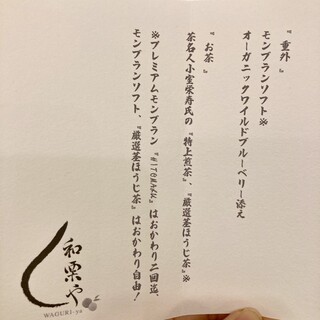 『重外』
モンブランソフト※
オーガニックワイルドブルーベリー添え
『お茶』
茶名人小室栄寿氏の『特上煎茶』、『厳選茎ほうじ茶』※
※プレミアムモンブラン『HITOMAKU』はおかわり二回迄、
モンブランソフト、『厳選茎ほうじ茶』はおかわり自由！
和栗や
WAGURI-ya